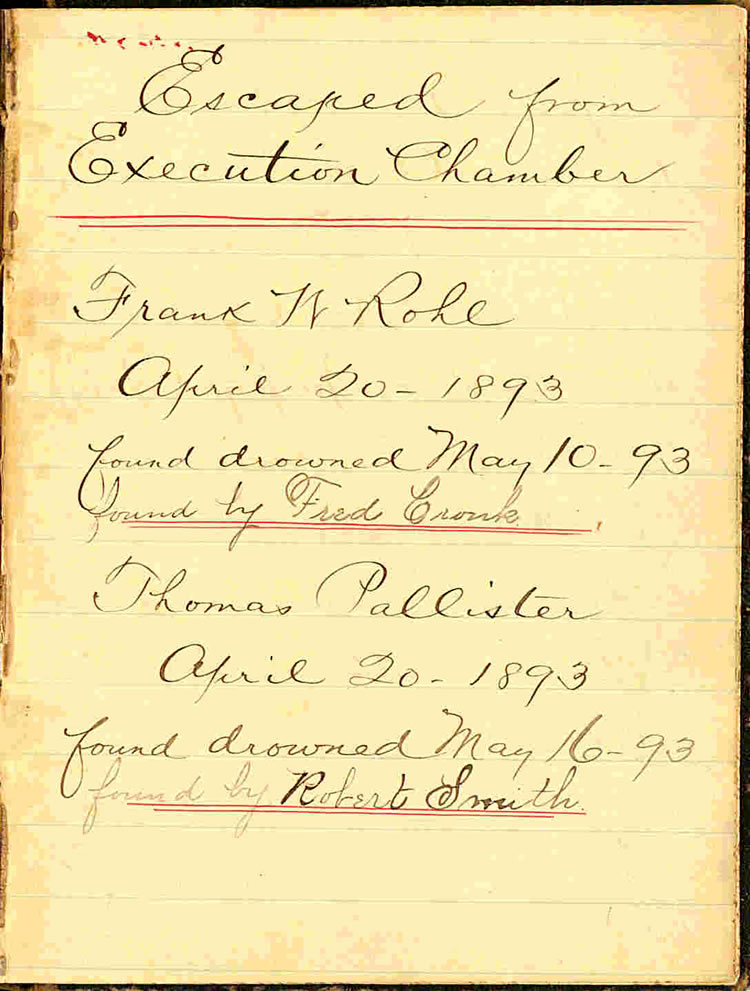 Escaped from
Execution Chamber
Frank W Rohl
April 20 - 1893
found drowned May 10 - 93
found by Fred Cronk
Thomas Pallister
April 20 - 1893
found drowned May 16 - 93
found by Robert Smith.